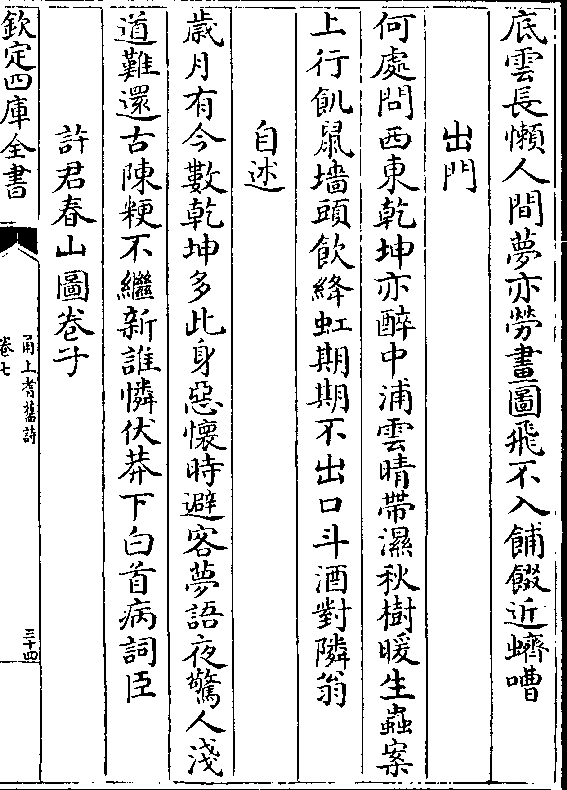 底雲長懶人間夢亦勞畫圖飛不入餔餟近蠐嘈
出門
何處問西東乾坤亦醉中浦雲晴帶濕秋樹暖生蟲案
上行飢鼠墻頭飲絳虹期期不出口斗酒對隣翁
自述
歲月有今數乾坤多此身惡懷時避客夢語夜驚人淺
道難還古陳粳不繼新誰憐伏莽下白首病詞臣
許君春山圖卷子
欽定四庫全書
甬上耆舊詩
卷七
三十四